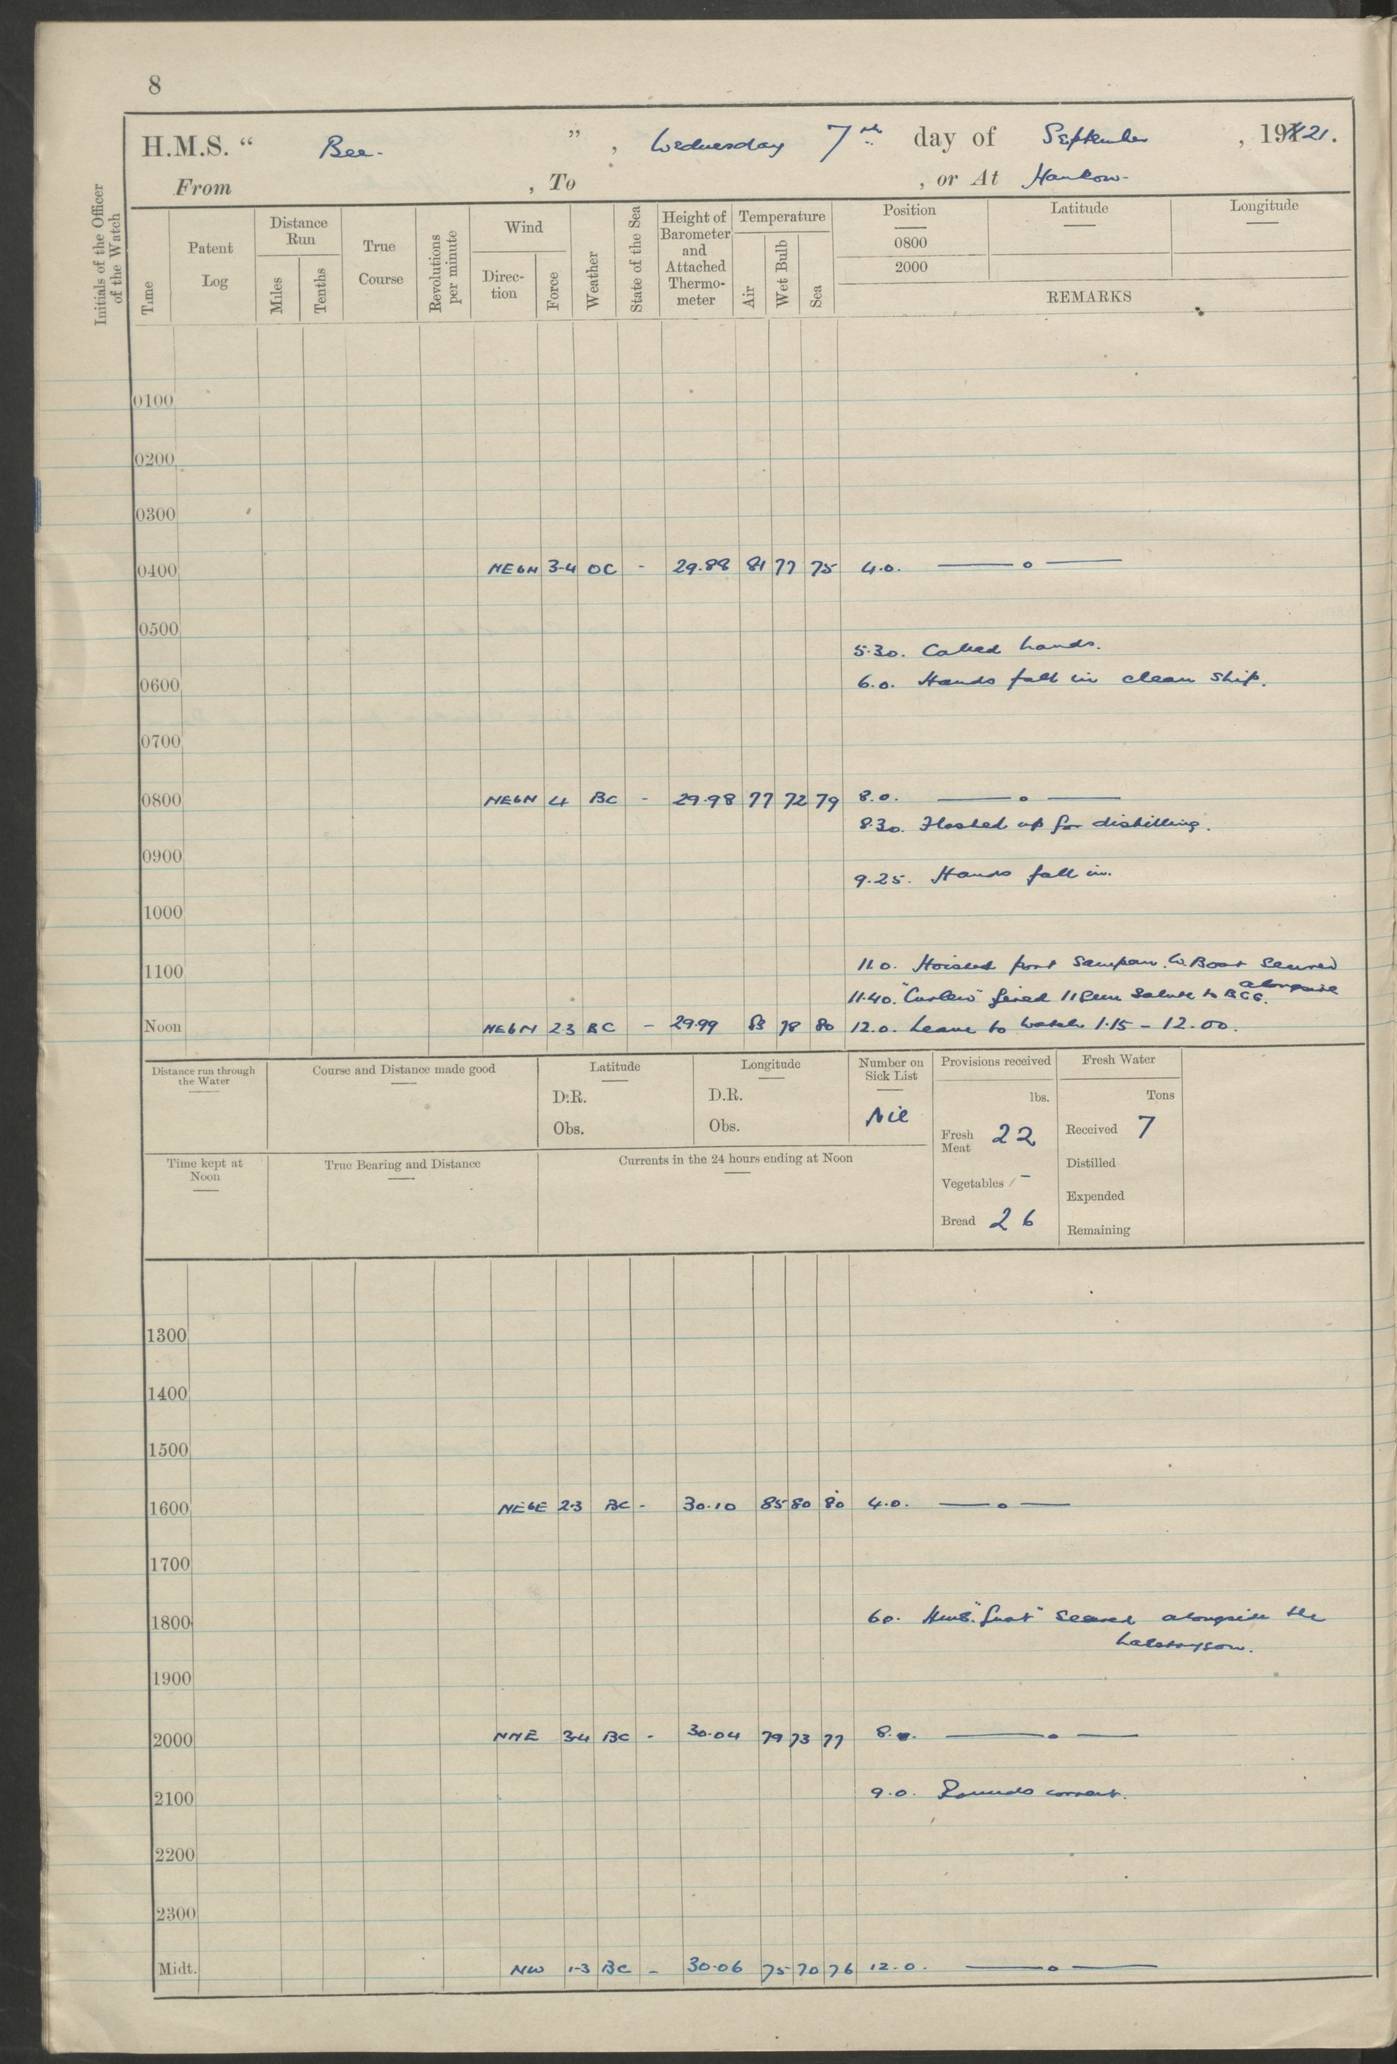 8
H.M.S. “ Bee. ” , Wednesday 7th day of September , 1921.
From , To , or At Hankow.
Initials of the Officer of the Watch
Time
Patent Log
Distance Run
Miles
Tenths
True Course
Revolutions per minute
Wind
Direc- tion
Force
Weather
State of the Sea
Height of Barometer and Attached Thermo- meter
Temperature
Air
Wet Bulb
Sea
Position
0800
2000
Latitude
Longitude
REMARKS
0100
0200
0300
0400 NEbN 3-4 OC - 29.88 81 77 75 4.0. —— o ——
0500
5.30. Called hands.
0600 6.0. Hands fall in clean ship.
0700
0800 NEbN 4 BC - 29.98 77 72 79 8.0. —— o ——
8.30. Flashed up for distilling.
0900
9.25. Hands fall in.
1000
1100 11.0. Hoisted port Sampan. W. Boat secured alongside
11.40. "Curlew" fired 11 gun Salute to BCG.
Noon NEbN 2.3 BC - 29.99 83 78 80 12.0. Leave to watch 1.15 - 12.00.
Distance run through the Water
Course and Distance made good
Latitude
D.R.
Obs.
Longitude
D.R.
Obs.
Number on Sick List
Nil
Provisions received
lbs.
Fresh Meat 22
Vegetables -
Bread 26
Fresh Water
Tons
Received 7
Distilled
Expended
Remaining
Time kept at Noon
True Bearing and Distance
Currents in the 24 hours ending at Noon
1300
1400
1500
1600 NEbE 2.3 BC - 30.10 85 80 80 4.0. —— o ——
1700
1800 6.0. H.M.S. "Gnat" secured alongside the
1900
2000 NNE 3-4 BC - 30.04 79 73 77 8.0. —— o ——
2100 9.0. Rounds correct.
2200
2300
Midt. NW 1-3 BC - 30.06 75 70 76 12.0. —— o ——